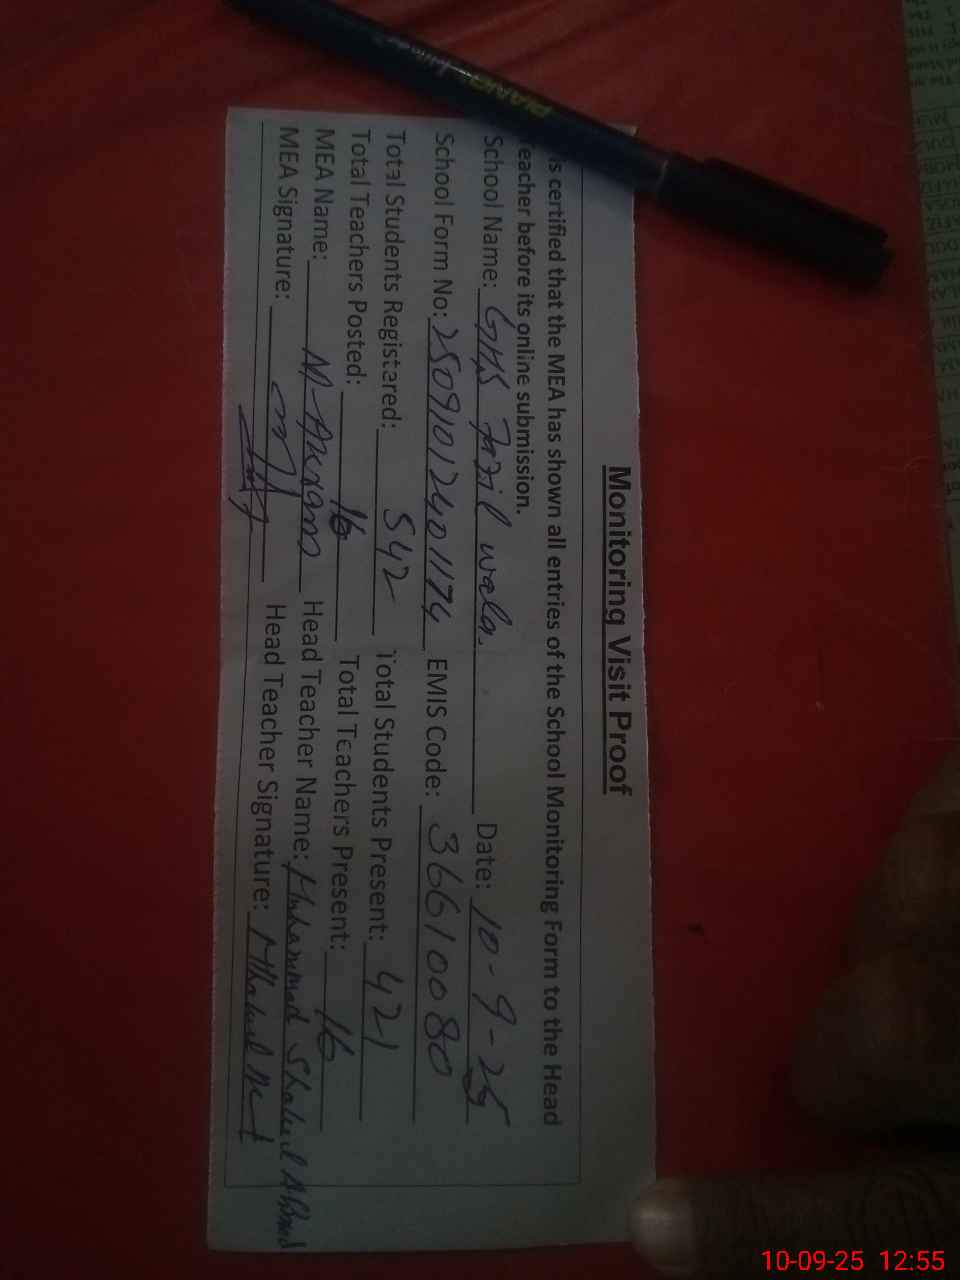 Monitoring Visit Proof
is certified that the MEA has shown all entries of the School Monitoring Form to the Head
eacher before its online submission.
School Name: GHS Fazil wala. Date: 10-9-25
School Form No: 25091012401174 EMIS Code: 36610080
Total Students Registared: 542 Total Students Present: 421
Total Teachers Posted: 16 Total Teachers Present: 16
MEA Name: M-Akram Head Teacher Name: Muhammad Shakeel Ahmad
MEA Signature: Head Teacher Signature:
PIANO
10-09-25 12:55